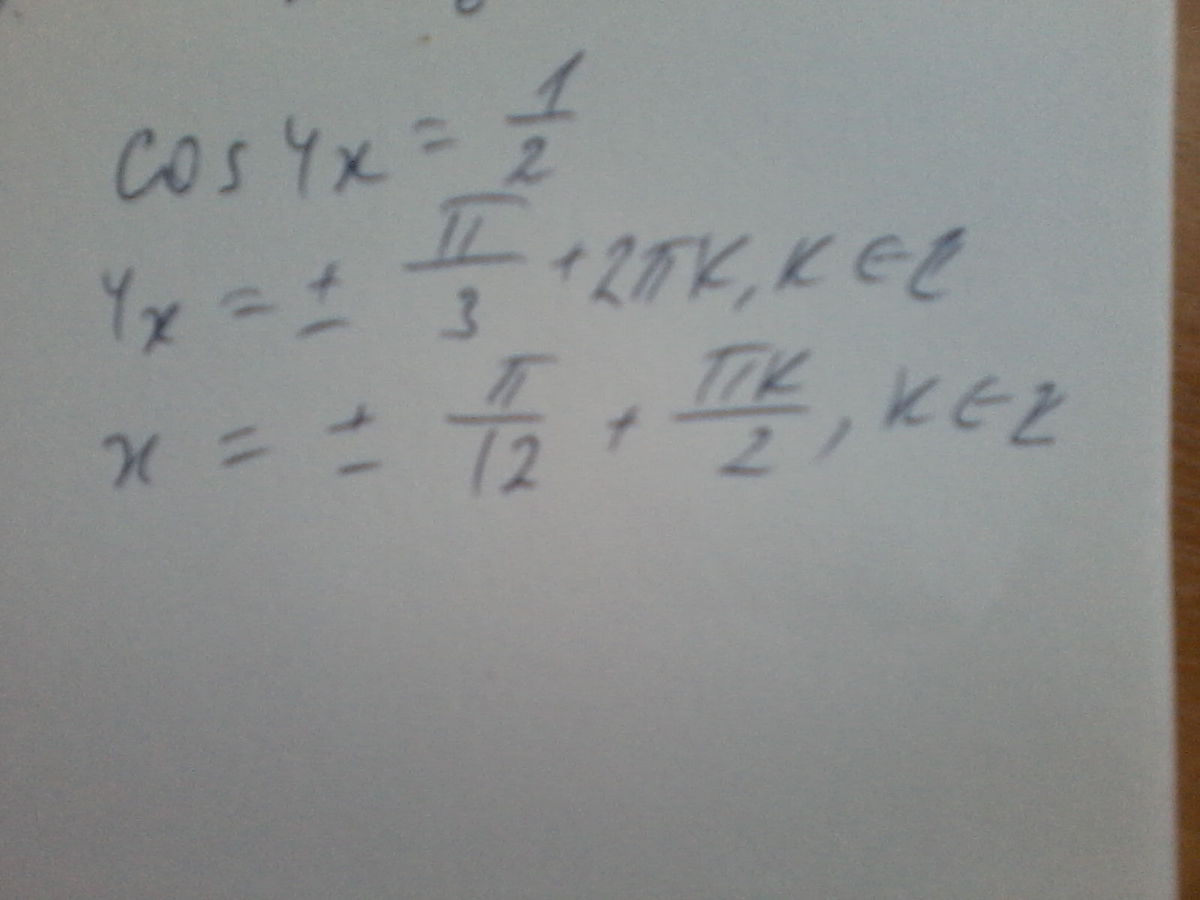 cos 4x = 1/2
4x = ± π/3 + 2πk, k ∈ Z
x = ± π/12 + πk/2, k ∈ Z